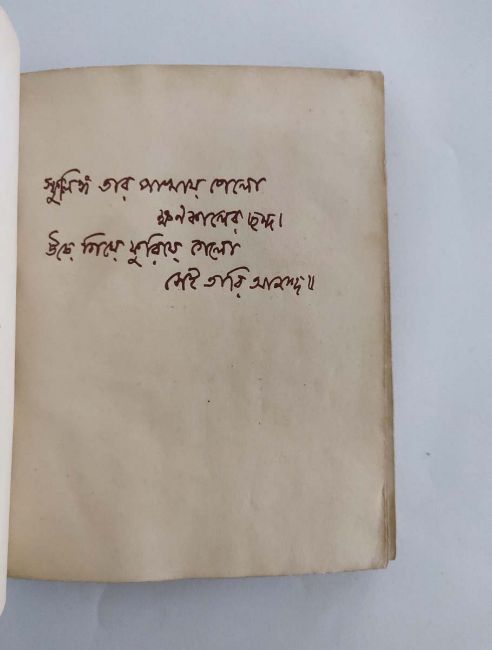 স্ফুলিঙ্গ তার পাখায় পেলো
ক্ষণকালের ছন্দ।
উড়ে গিয়ে ফুরিয়ে গেলো
সেই তারি আনন্দ॥